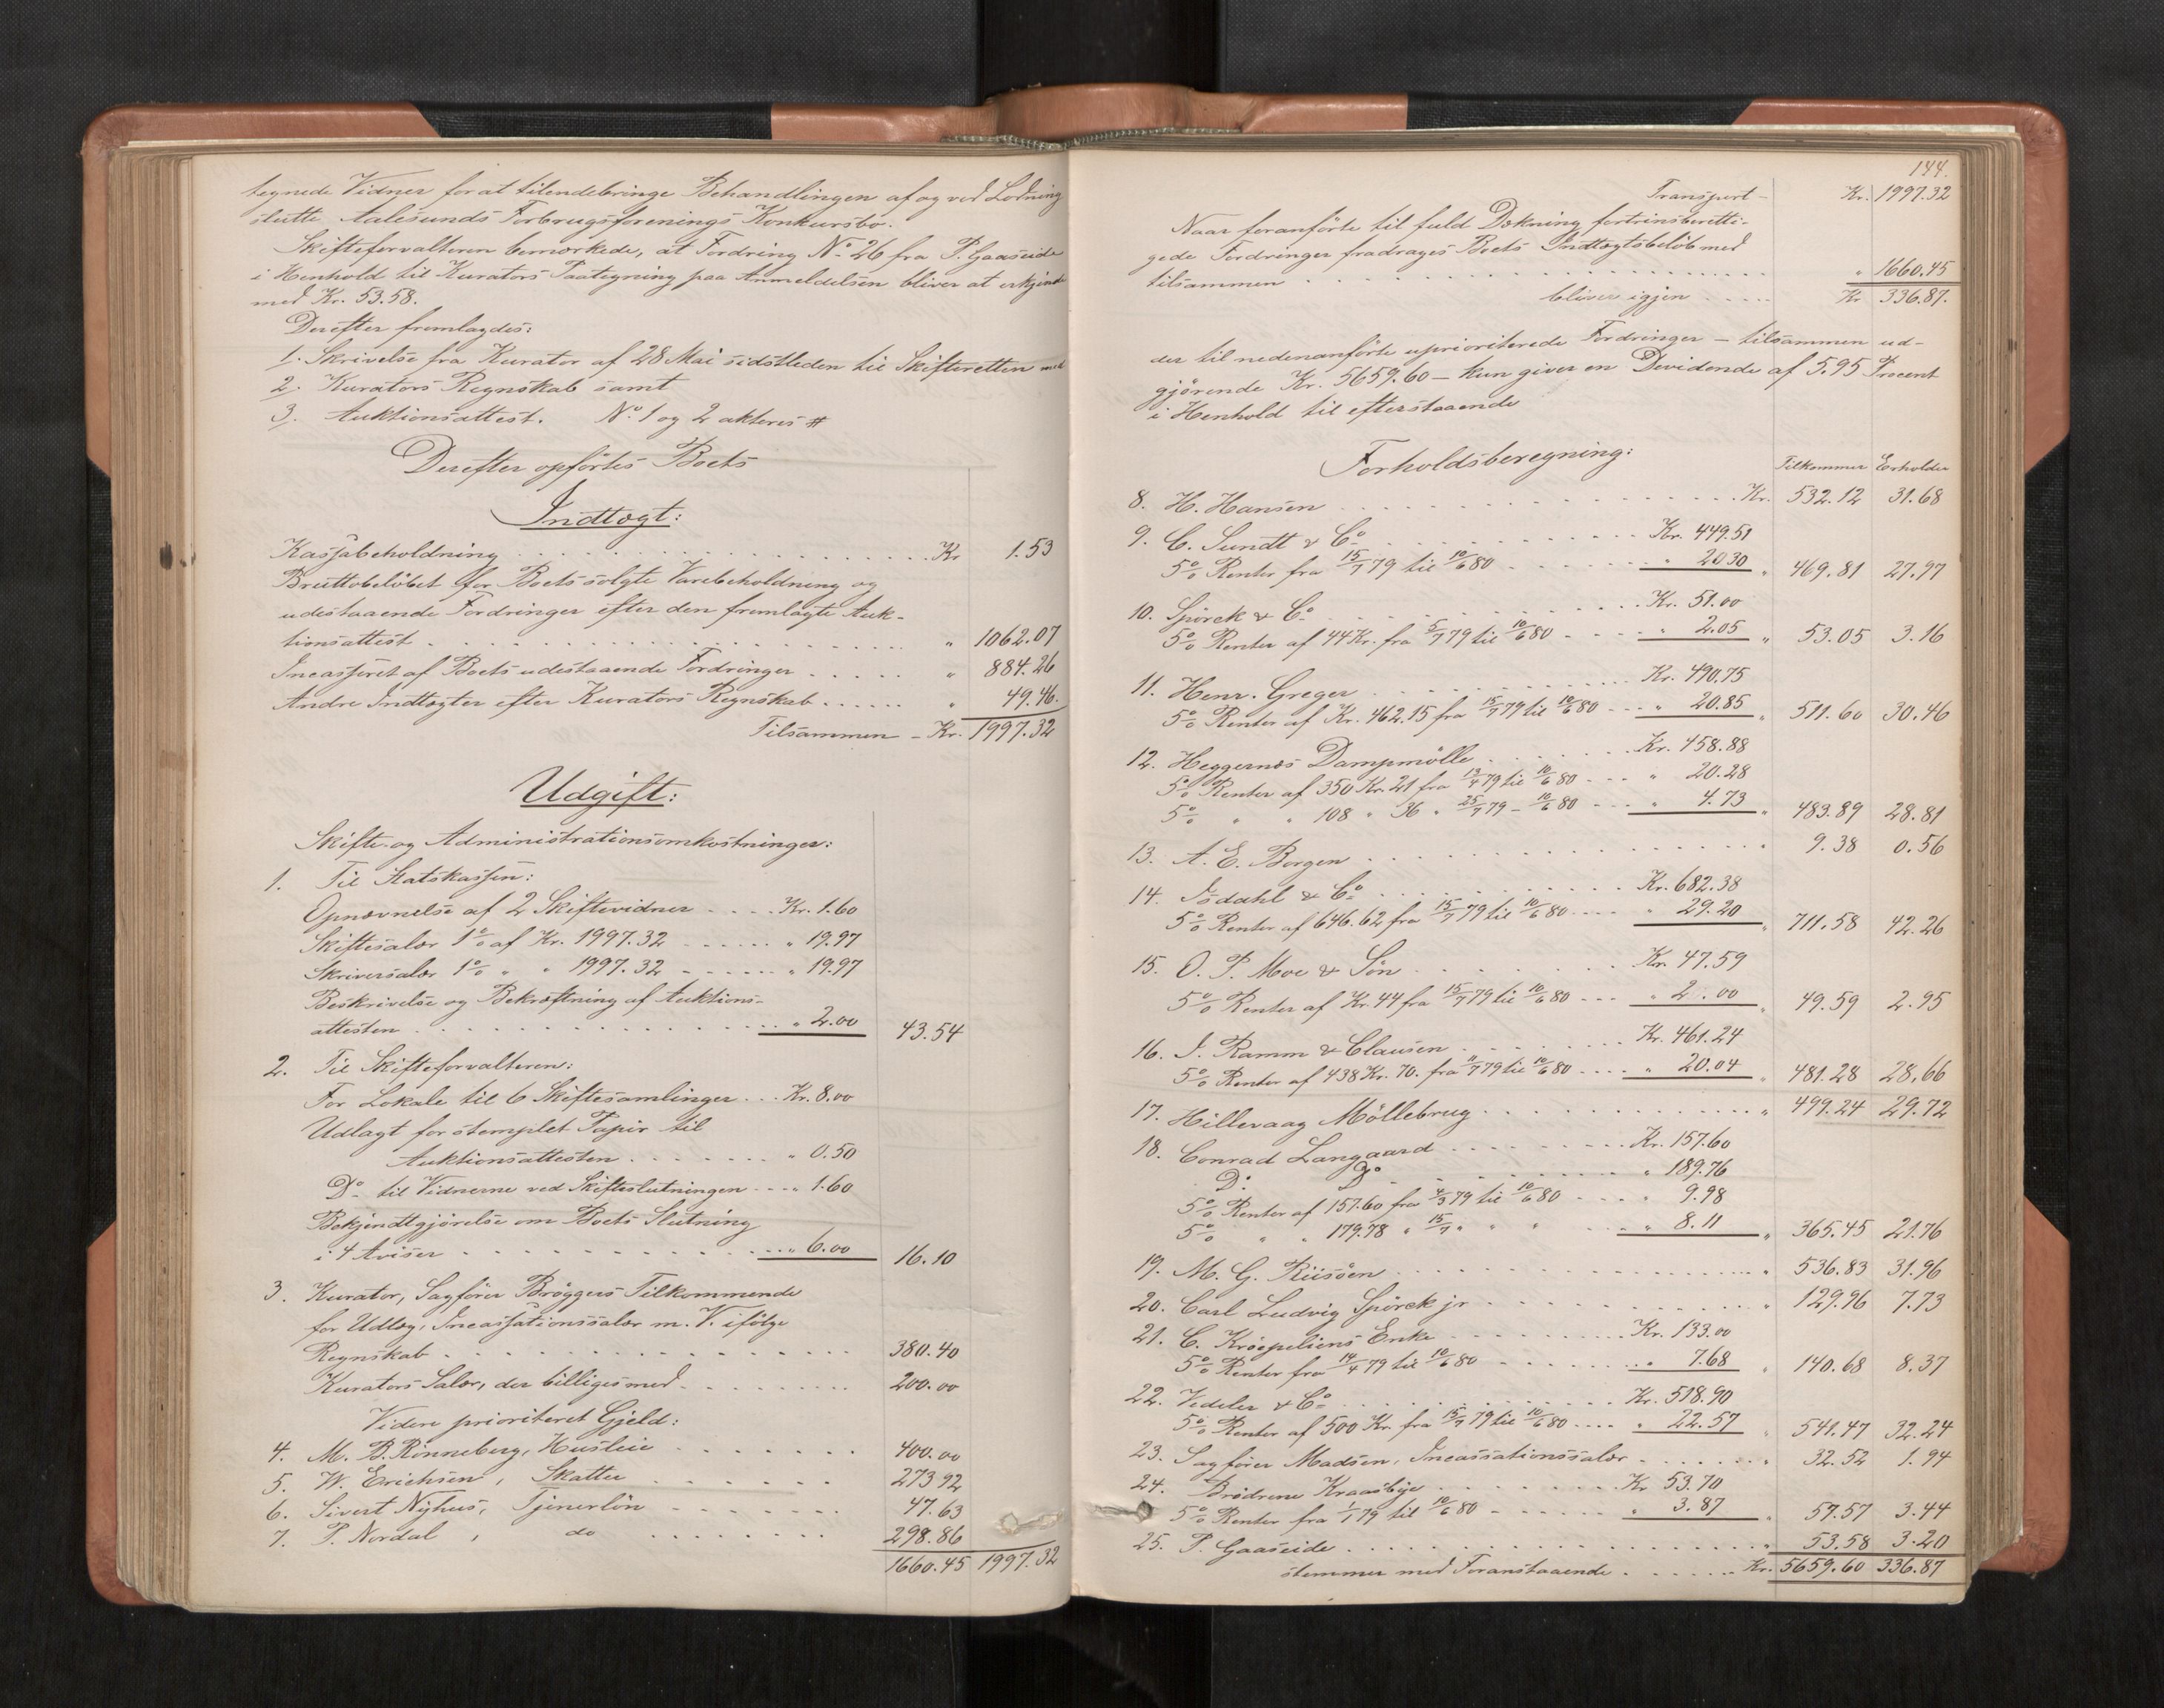 tegnede Vidner for at tilendebringe Behandlingen af og ved Lodning
slutte Aalesunds Forbrugsforenings Konkursbo.
Skifteforvalteren bemærkede, at Fordring No 26 fra P. Gaaseide
i Henhold til Kurators Paategning paa Anmeldelsen bliver at erkjende
med Kr. 53.58.
Derefter fremlagdes:
1. Skrivelse fra Kurator af 28 Mai sidstleden til Skifteretten med
2. Kurators Regnskab samt
3. Auktionsattest. No 1 og 2 akteres #
Derefter opførtes Boets
Indtægt:
Kassabeholdning . . . Kr 1.53
Bruttobeløbet for Boets solgte Varebeholdning og
udestaaende Fordringer efter den fremlagte Auk-
tionsattest . . . " 1062.07
Incasseret af Boets udestaaende Fordringer . . . " 884.26
Andre Indtægter efter Kurators Regnskab . . . " 49.46.
Tilsammen - Kr. 1997.32
Udgift:
Skifte- og Administrationsomkostninger:
1. Til Statskassen:
Opnævnelse af 2 Skiftevidner . . . Kr. 1.60
Skiftesalær 1% af Kr. 1997.32 . . . " 19.97
Skriversalær 1% " " 1997.32 . . . " 19.97
Beskrivelse og Bekræftning af Auktions-
attesten . . . " 2.00 43.54
2. Til Skifteforvalteren:
For Lokale til 6 Skiftesamlinger . . . Kr. 8.00
Udlagt for stemplet Papir til
Auktionsattesten . . . " 0.50
Do til Vidnerne ved Skifteslutningen . . . " 1.60
Bekjendtgjørelse om Boets Slutning
i 4 Aviser . . . " 6.00 16.10
3. Kurator, Sagfører Brøggers Tilkommende
for Udlæg, Incassationssalær m. V. ifølge
Regnskab . . . 380.40
Kurators Salær, der billiges med . . . 200.00
Videre prioriteret Gjeld:
4. M. B. Rønneberg, Husleie . . . 400.00
5. W. Erichsen, Skatter . . . 273 92
6. Sivert Nyhus, Tjenerløn . . . 47.63
7. P. Nordal, do . . . 298.86
1660.45 1997.32
144.
Transport - Kr. 1997.32
Naar foranførte til fuld Dækning fortrinsberetti-
gede Fordringer fradrages Boets Indtægtsbeløb med
tilsammen . . . " 1660.45
bliver igjen . . . Kr 336.87.
der til nedenanførte uprioriterede Fordringer — tilsammen ud-
gjørende Kr. 5659.60 — kun giver en Devidende af 5.95 Procent
i Henhold til efterstaaende
Forholdsberegning:
Tilkommer Erholder
8. H. Hansen . . . Kr. 532.12 31.68
9. C. Sundt & Co . . . Kr. 449.51
5% Renter fra 15/7 79 til 10/6 80 . . . " 20 30 " 469.81 27.97
10. Spørck & Co . . . Kr. 51.00
5% Renter af 44 Kr. fra 5/7 79 til 10/6 80 . . . " 2.05 " 53.05 3.16
11. Henr. Greger . . . Kr. 490.75
5% Renter af Kr. 462.15 fra 15/7 79 til 10/6 80 . . . " 20.85 " 511.60 30.46
12. Heggernæs Dampmølle . . . Kr. 458.88
5% Renter af 350 Kr. 21 fra 13/4 79 til 10/6 80 . . . " 20.28
5% " " 108 " 36 " 25/7 79 - 10/6 80 . . . " 4.73 " 483.89 28.81
13. A. E. Borgen . . . " 9.38 0.56
14. Isdahl & Co . . . Kr. 682.38
5% Renter af 646.62 fra 15/7 79 til 10/6 80 . . . " 29.20 " 711.58 42.26
15. O. P. Moe & Søn . . . Kr. 47.59
5% Renter af Kr. 44 fra 15/7 79 til 10/6 80 . . . " 2.00 " 49.59 2.95
16. J. Ramm & Clausen . . . Kr. 461.24
5% Renter af 438 Kr. 70. fra 11/7 79 til 10/6 80 . . . " 20.04 " 481.28 28.66
17. Hillevaag Møllebrug . . . " 499.24 29.72
18. Conrad Langaard . . . Kr. 157.60
Do Do . . . " 189.76
5% Renter af 157.60 fra 4/3 79 til 10/6 80 . . . " 9.98
5% " " 179.78 " 15/7 " " " . . . " 8.11 " 365.45 21.76
19. M. G. Riisøen . . . " 536.83 31.96
20. Carl Ludvig Spørck jr . . . " 129.96 7.73
21. C. Krøepeliens Enke . . . Kr. 133.00
5% Renter fra 14/4 79 til 10/6 80 . . . " 7.68 " 140.68 8.37
22. Vedeler & Co . . . Kr. 518.90
5% Renter af 500 Kr. fra 15/7 79 til 10/6 80 . . . " 22.57 " 541.47 32.24
23. Sagfører Madsen, Incassationssalær . . . " 32.52 1.94
24. Brødrene Kraasbye . . . Kr 53.70
5% Renter fra 1/1 79 til 10/6 80 . . . " 3.87 " 57.57 3.44
25. P. Gaaseide . . . " 53.58 3.20
stemmer med Foranstaaende . . . Kr. 5659.60 336.87